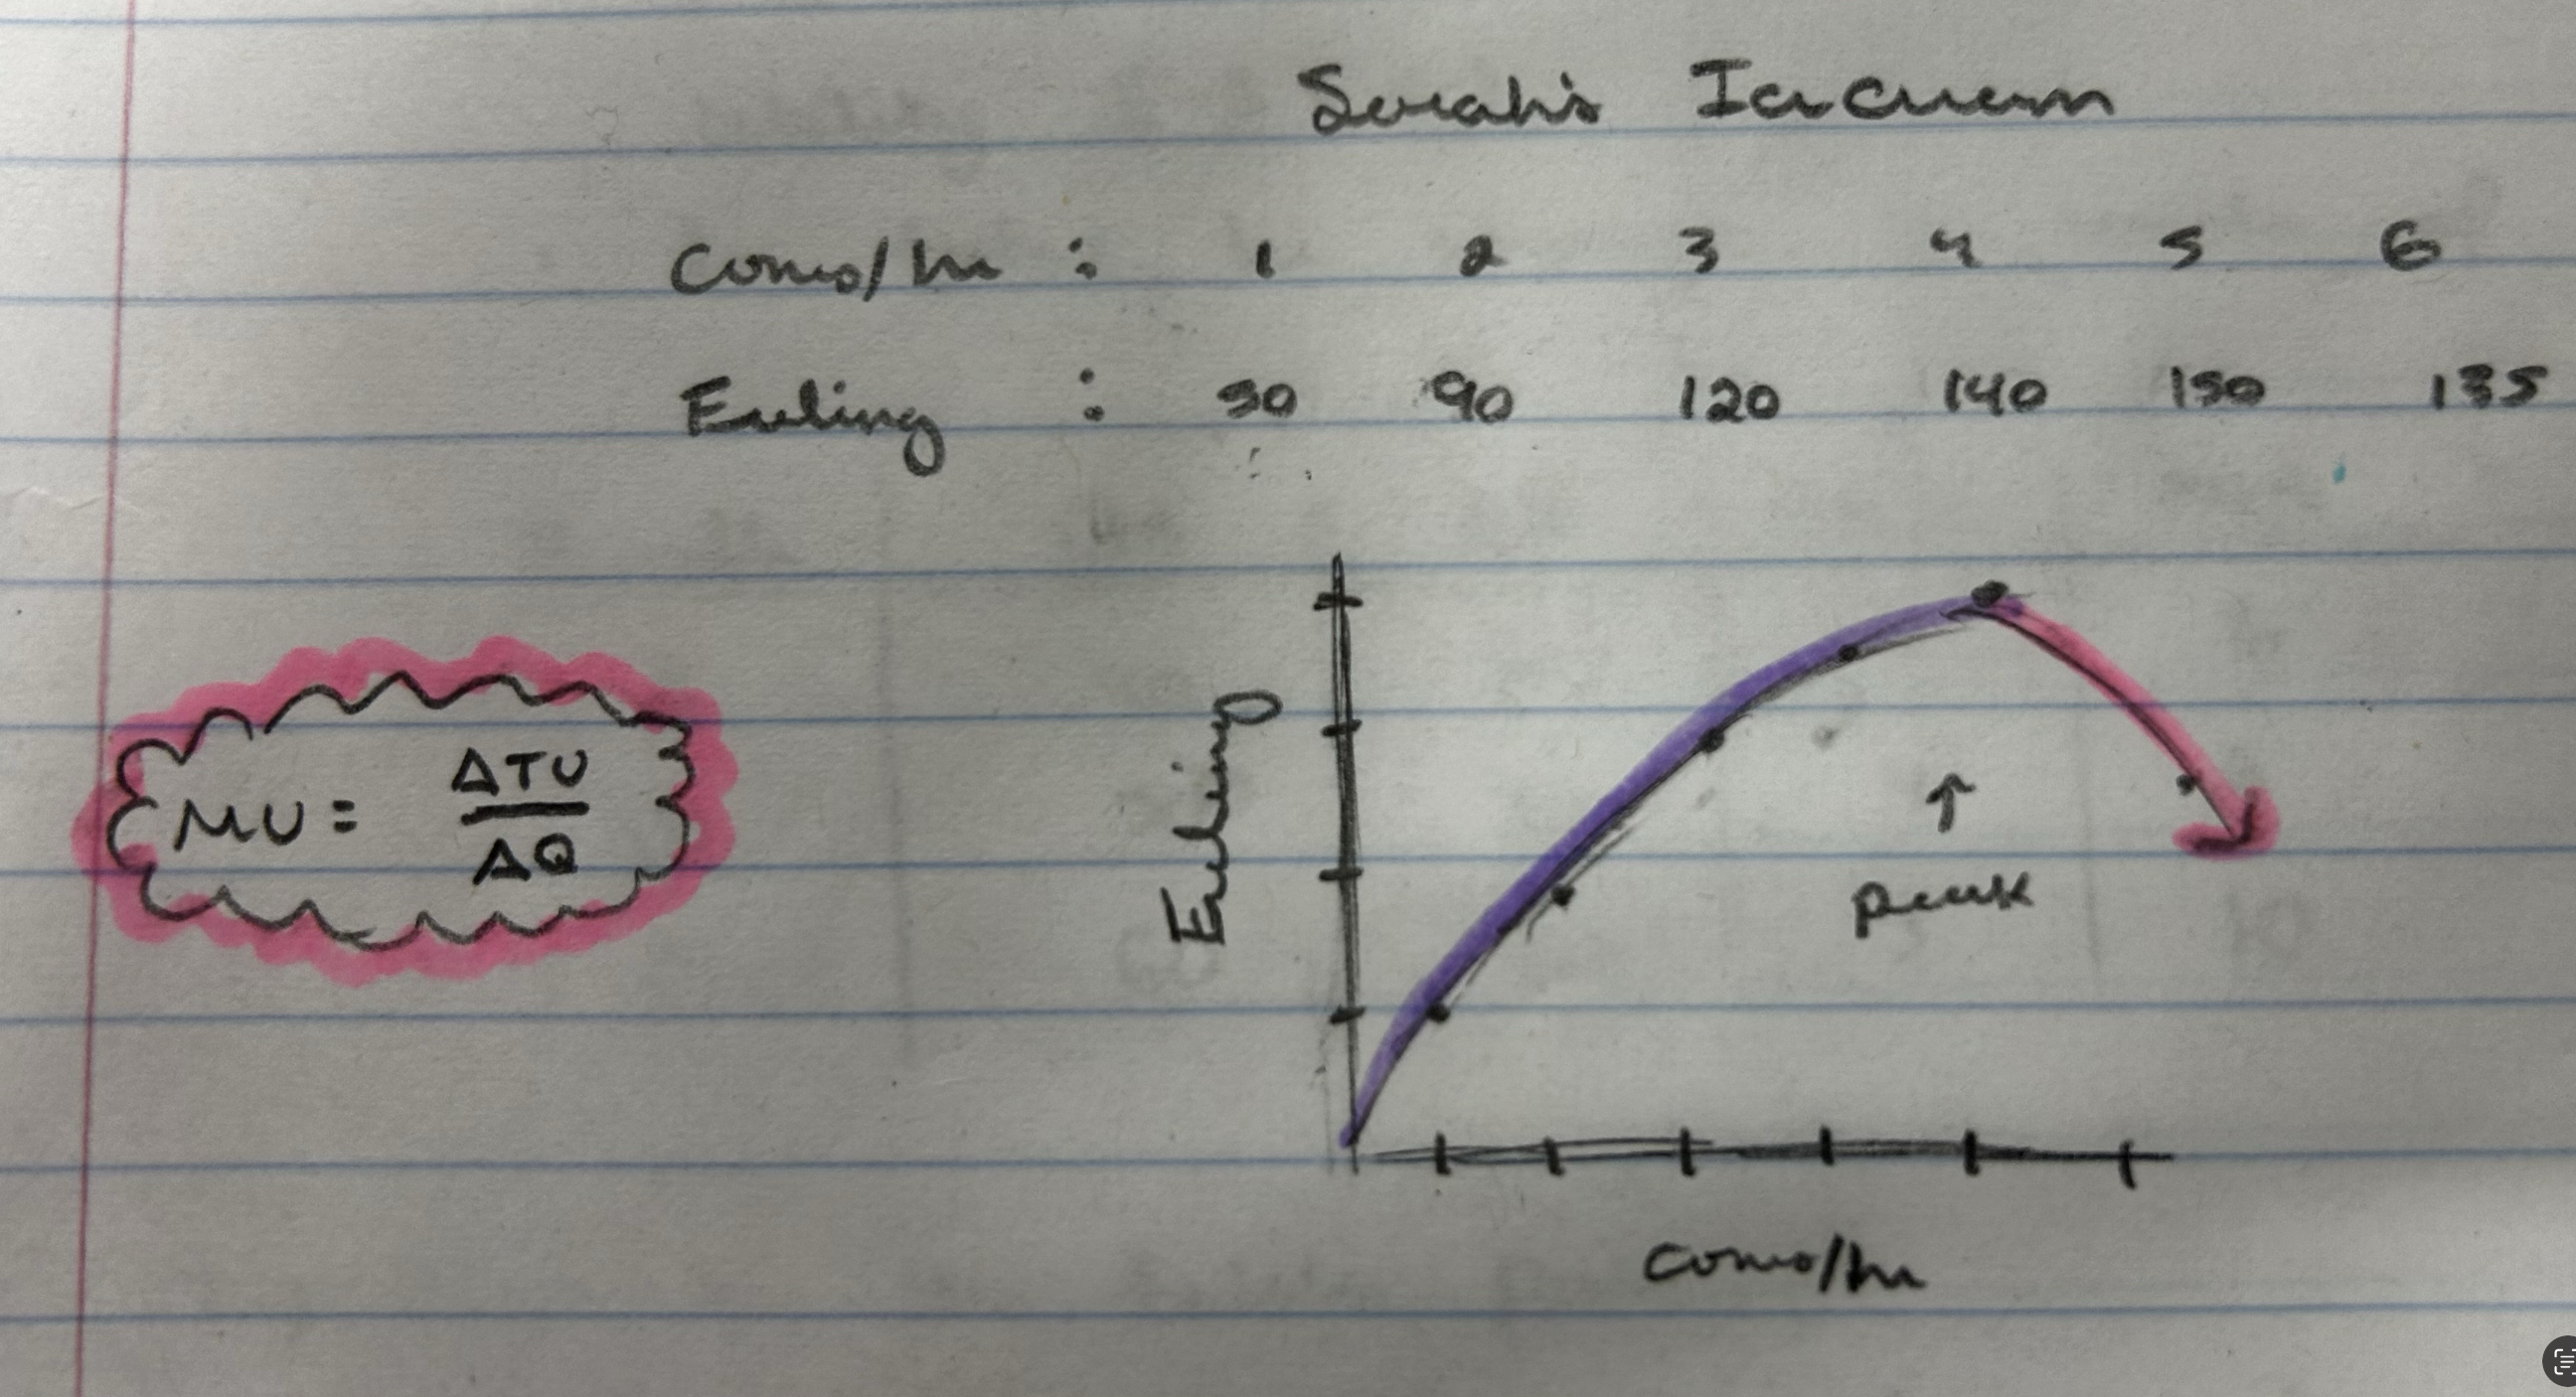 Sarah's Icecream
Cones/hr : 1 2 3 4 5 6
Feeling : 50 90 120 140 150 135
MU = ΔTU
ΔQ
Feeling
↑
peak
cones/hr